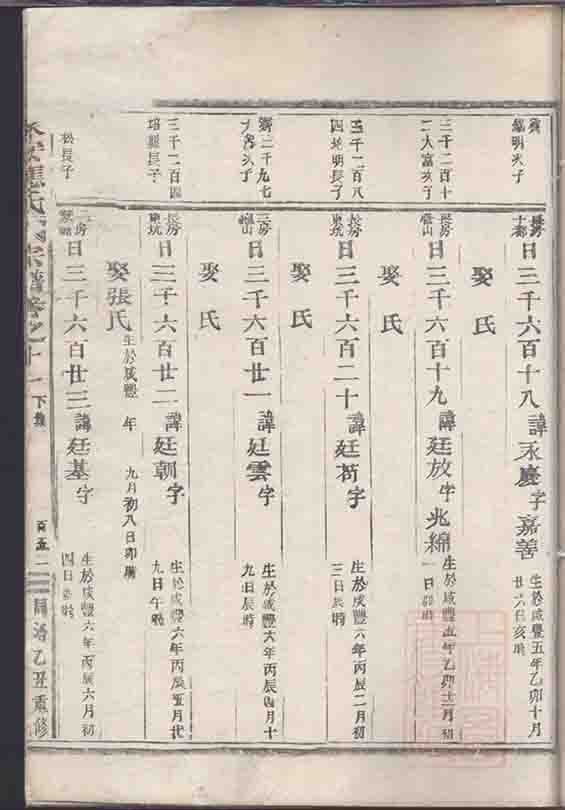 明次子
長房
日三千六百十八諱永慶字嘉善
生於咸豐五年乙卯十月
廿六日亥時
娶氏
三千二百十
二大富次子
長房
日三千六百十九諱廷放字兆綿
生於咸豐五年乙卯十二月初
一日
娶氏
三千二百八
四 明長子
長房
東坑
日三千六百二十諱廷苟字
生於咸豐六年丙辰二月初
三日辰時
娶氏
三千九七
次子
三房
日三千六百廿一諱廷雲字
生於咸豐六年丙辰四月十
九日辰時
娶氏
三千二百四
培 長子
長房
東坑
日三千六百廿二諱廷朝字
生於咸豐六年丙辰五月廿
九日午時
娶張氏
生於咸豐 年 九月初八日卯時
松長子
二房
日三千六百廿三諱廷基字
生於咸豐六年丙辰六月初
四日 時
氏宗譜卷之十一下集
百五二
同治乙丑重修